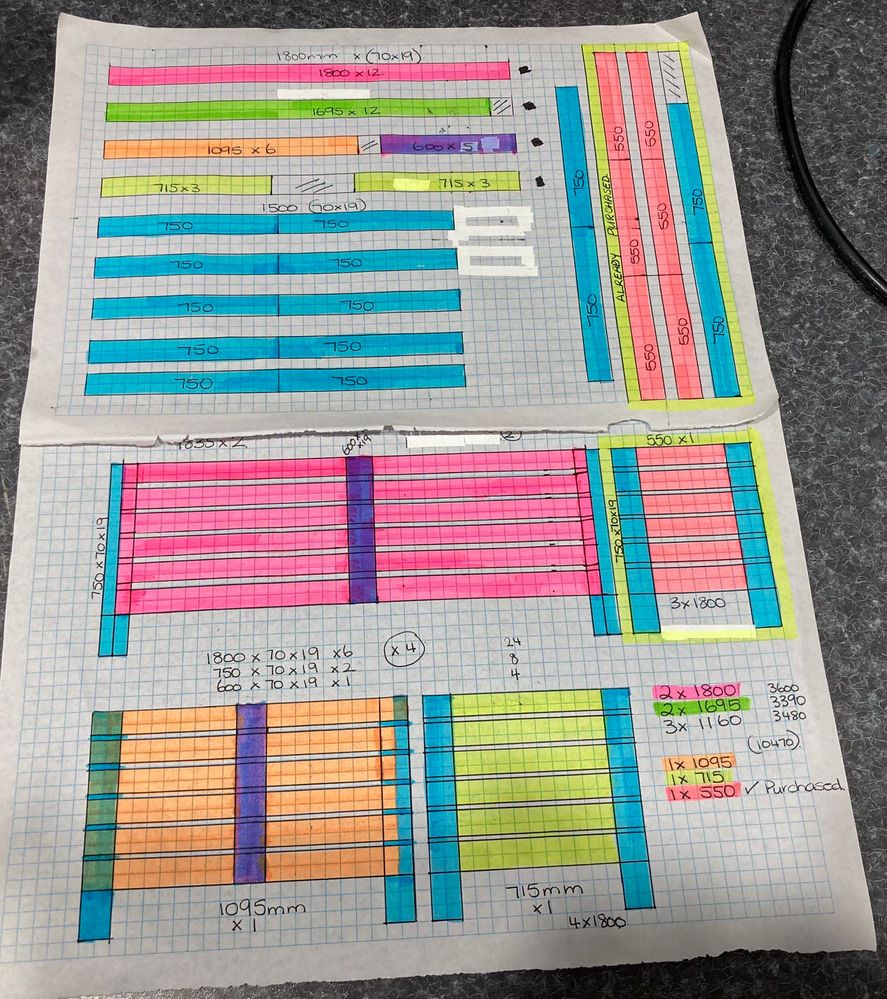 1800mm x (70x19)
1800 x 12.
1695 x 12
1095 x 6
600 x 5
715 x 3
715 x 3
1500 (70x19)
750
750
750
750
750
750
750
750
750
750
750
750
ALREADY PURCHASED.
550
550
550
550
550
550
750
750
1835 x 2
600 x 70 x 19
2
750 x 70 x 19
750 x 70 x 19
550 x 1
3 x 1800
1800 x 70 x 19 x6
750 x 70 x 19 x2
600 x 70 x 19 x1
x 4
24
8
4
2 x 1800 3600
2 x 1695 3390
3 x 1160 3480
(10470).
1 x 1095
1 x 715
1 x 550 ✓ Purchased.
1095mm
x 1
715mm
x 1
4 x 1800